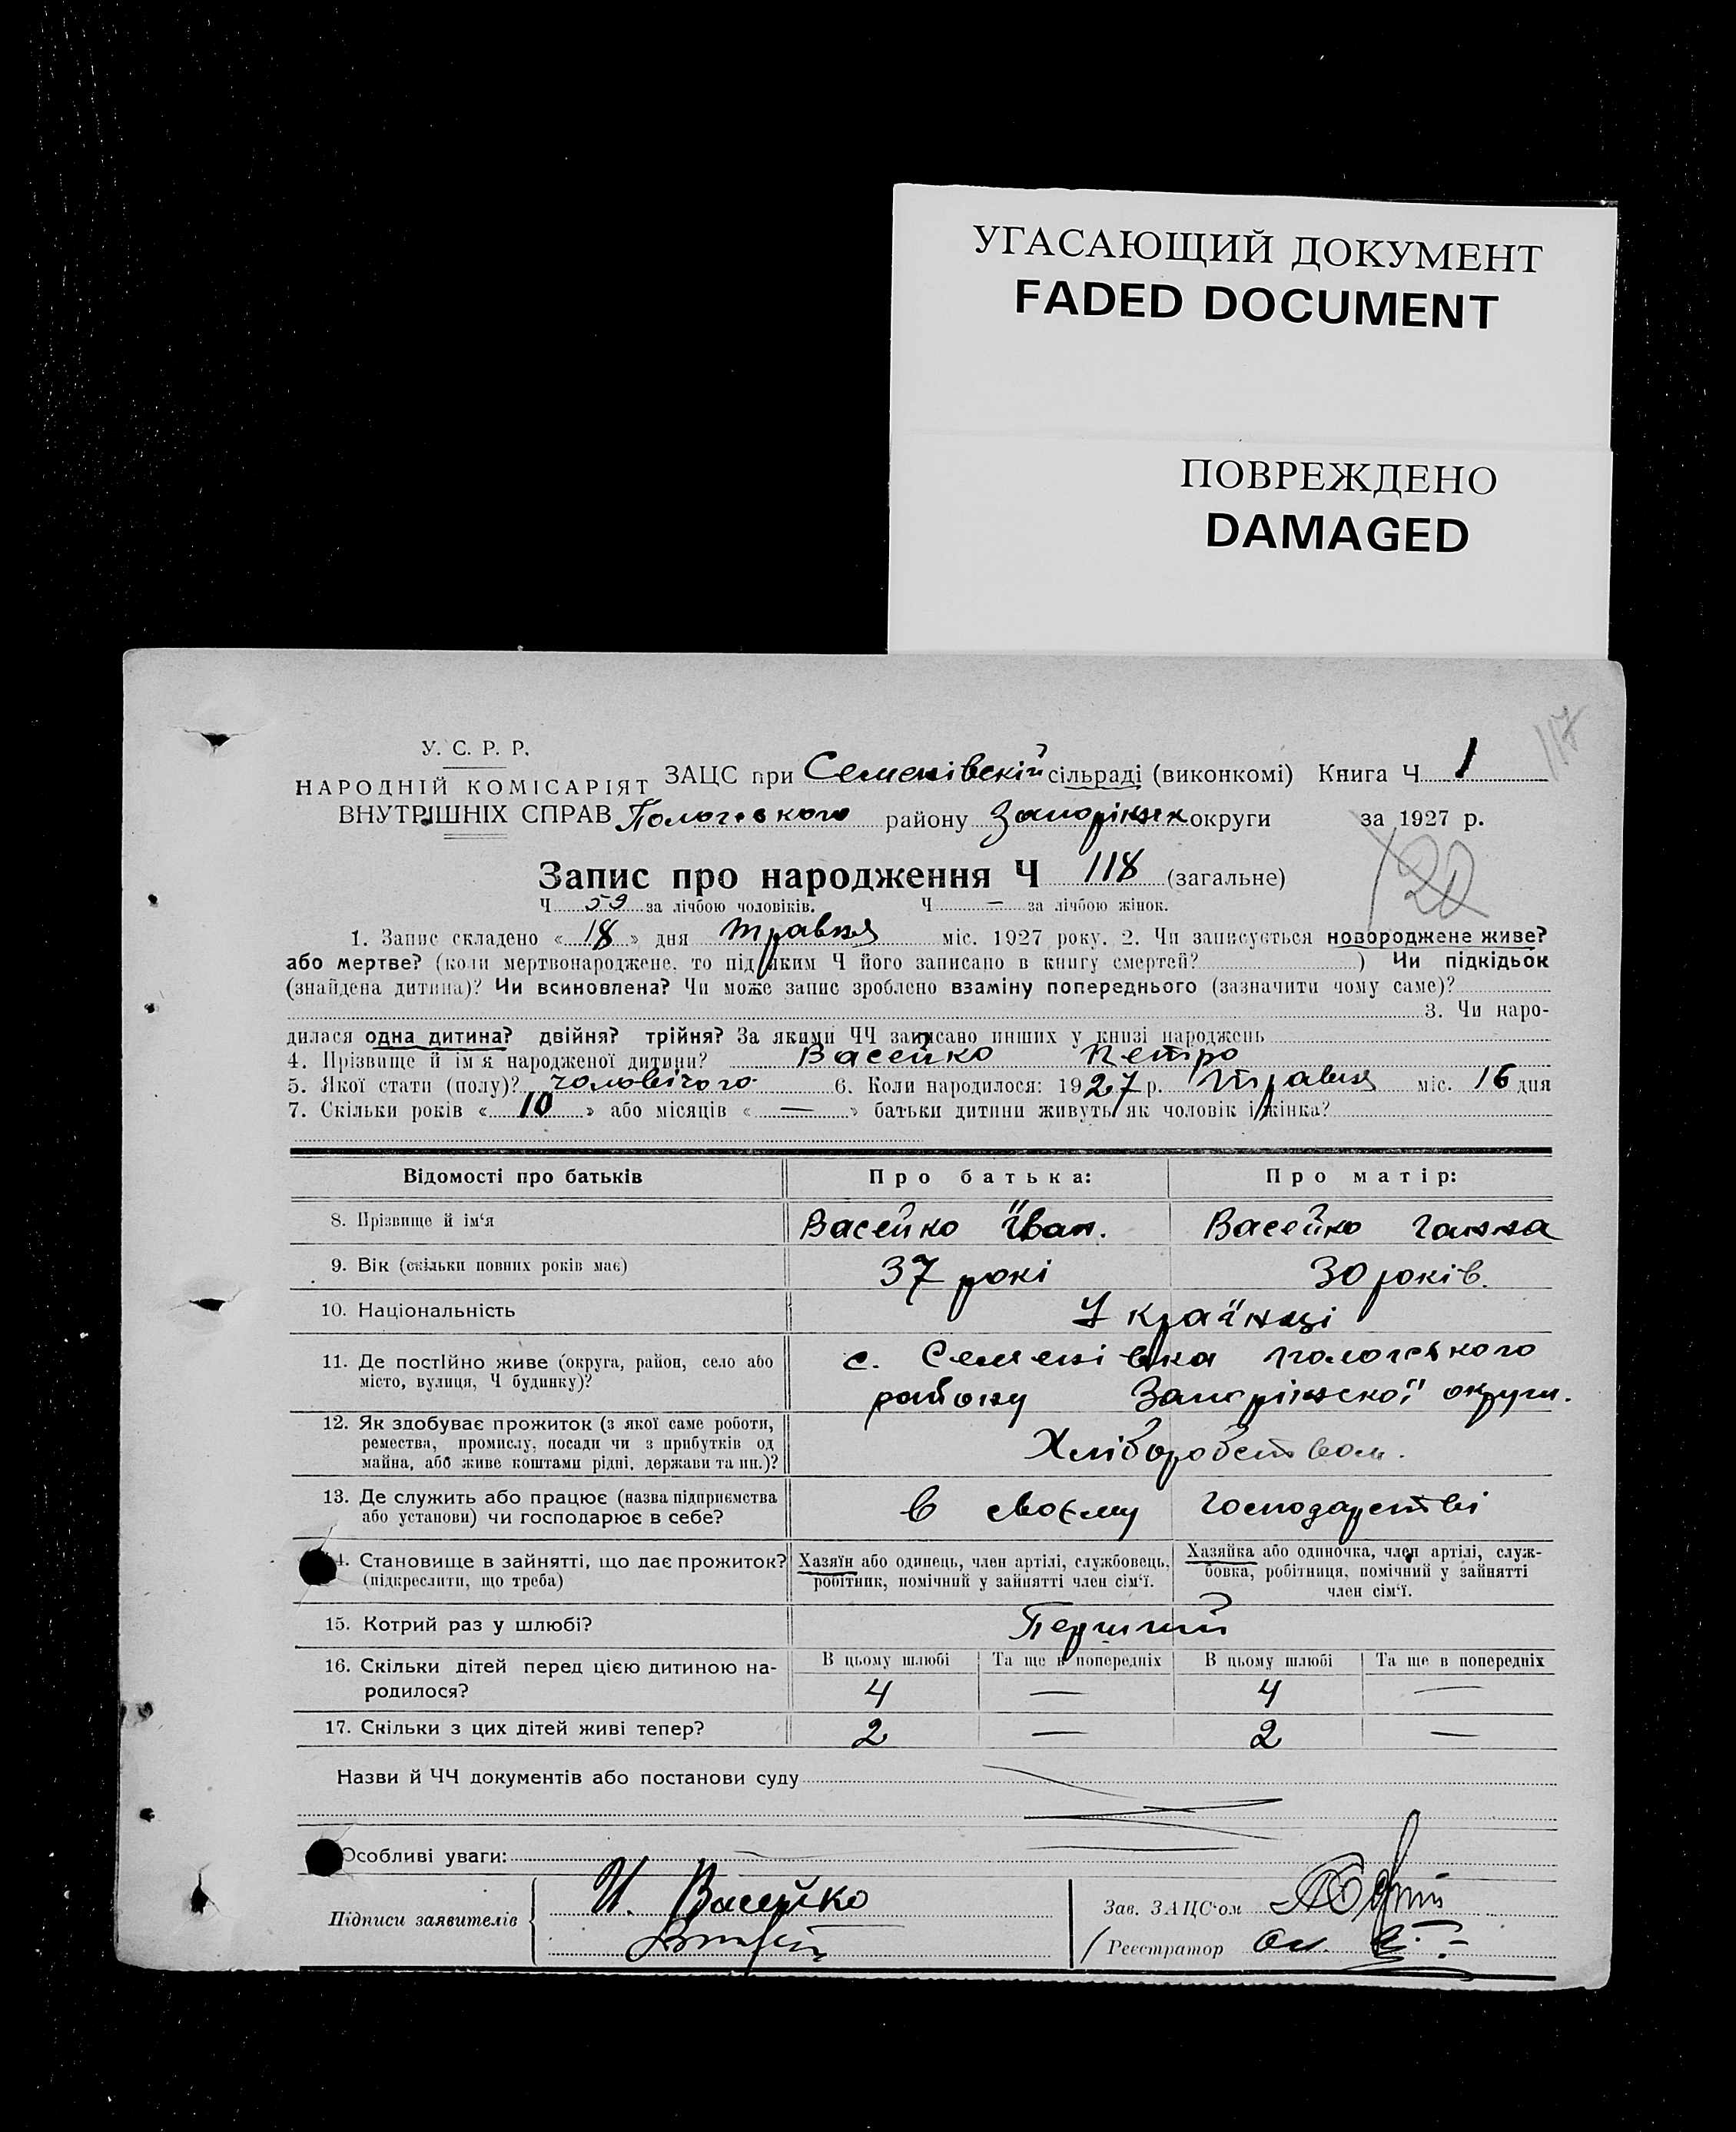 УГАСАЮЩИЙ ДОКУМЕНТ
FADED DOCUMENT
ПОВРЕЖДЕНО
DAMAGED
117
У. С. Р. Р.
НАРОДНІЙ КОМІСАРІЯТ
ВНУТРІШНІХ СПРАВ
ЗАЦС при Семенівскій сільраді (виконкомі) Книга Ч 1
Пологовского району Запоріжск округи за 1927 р.
120
Запис про народження Ч 118 (загальне)
Ч 59 за лічбою чоловіків. Ч — за лічбою жінок.
1. Запис складено « 18 » дня травня міс. 1927 року. 2. Чи записується новороджене живе?
або мертве? (коли мертвонароджене, то під яким Ч його записано в книгу смертей? ) Чи підкідьок
(знайдена дитина)? Чи всиновлена? Чи може запис зроблено взаміну попереднього (зазначити чому саме)?
3. Чи наро-
дилася одна дитина? двійня? трійня? За якими ЧЧ записано инших у книзі народжень
4. Прізвище й ім'я народженої дитини? Васейко Петро
5. Якої стати (полу)? чоловічого 6. Коли народилося: 1927 р. травня міс. 16 дня
7. Скільки років « 10 » або місяців « — » батьки дитини живуть як чоловік і жінка?
Відомості про батьків Про батька: Про матір:
8. Прізвище й ім'я Васейко Йван. Васейко Ганна
9. Вік (скільки повних років має) 37 рокі 30 років.
10. Національність Українці
11. Де постійно живе (округа, район, село або
місто, вулиця, Ч будинку)?
с. Семенівка пологвского
району Запоріжскої округи.
12. Як здобуває прожиток (з якої саме роботи,
ремества, промислу, посади чи з прибутків од
майна, або живе коштами рідні, держави та ин.)?
Хліборобством.
13. Де служить або працює (назва підприємства
або установи) чи господарює в себе?
в своєму господарстві
4. Становище в зайнятті, що дає прожиток?
(підкреслити, що треба)
Хазяїн або одинець, член артілі, службовець,
робітник, помічний у зайнятті член сім'ї.
Хазяйка або одиночка, член артілі, служ-
бовка, робітниця, помічний у зайнятті
член сім'ї.
15. Котрий раз у шлюбі? Перший
16. Скільки дітей перед цією дитиною на-
родилося?
В цьому шлюбі Та ще в попередніх В цьому шлюбі Та ще в попередніх
4 — 4 —
17. Скільки з цих дітей живі тепер? 2 — 2 —
Назви й ЧЧ документів або постанови суду
Особливі уваги:
Підписи заявителів И. Васейко
Зав. ЗАЦС'ом
Реєстратор